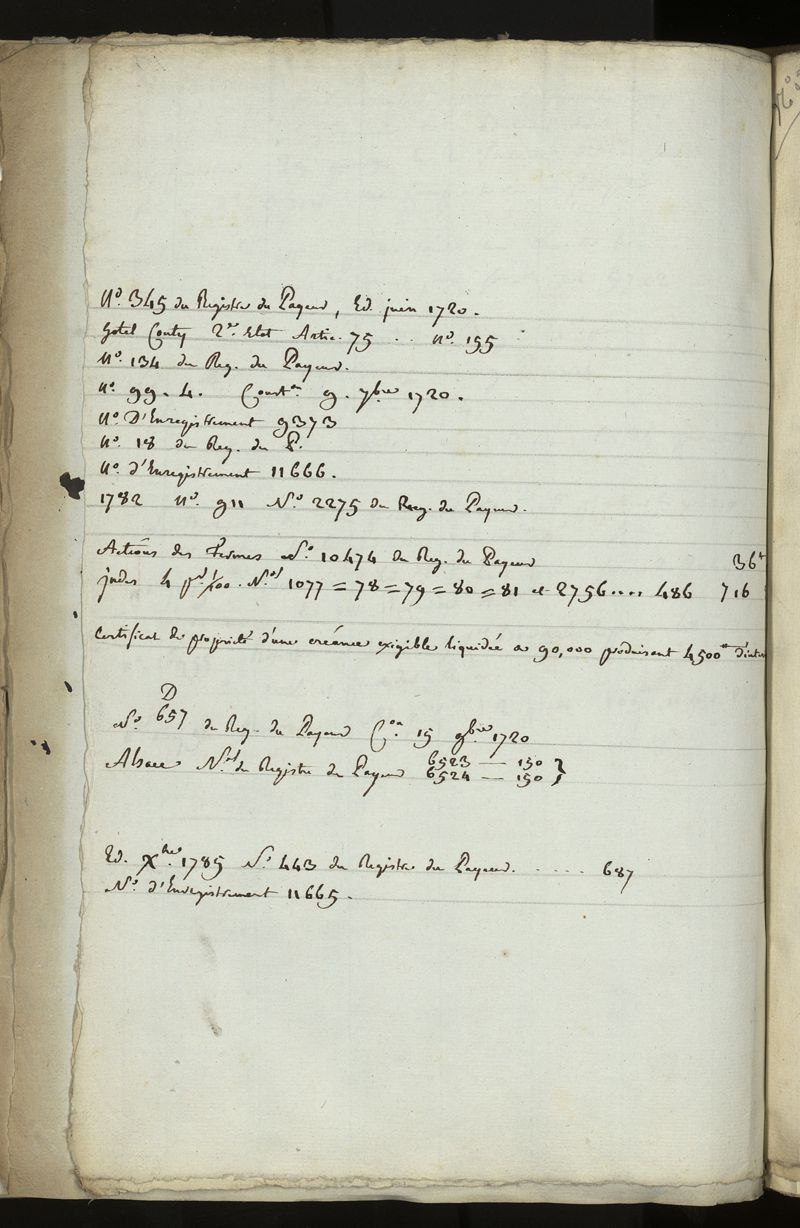 N.º 345 du Registre du Payeur, Ed. juin 1720.
hotel Conty 2.e Etat Artic. 75 .. N.º 155
N.º 134 du Reg. du Payeur.
N.º 99. 4. Const.on 9. 7bre 1720.
N.º D'Enregistrement 9373
N.º 18 du Reg. du P.
N.º d'Enregistrement 11666.
1782 N.º 911 N.º 2275 du Reg. du Payeur.
Actions des Fermes N.º 10474 du Reg. du Payeur 36
Indes 4 p.r 1/100. N.os 1077 = 78 = 79 = 80 = 81 et 2756.... 486 716
Certificat de propriété d'une créance exigible liquidée a 90,000 produisant 4,500
D
N.º 657 du Reg. du Payeur C.on 15 9bre 1720
Alsace N.os du Registre du Payeur 6523 — 150 }
6524 — 150 }
Ed. Xbre 1785 N.º 443 du Registre du Payeur. ..... 687
N.º d'Enregistrement 11665.